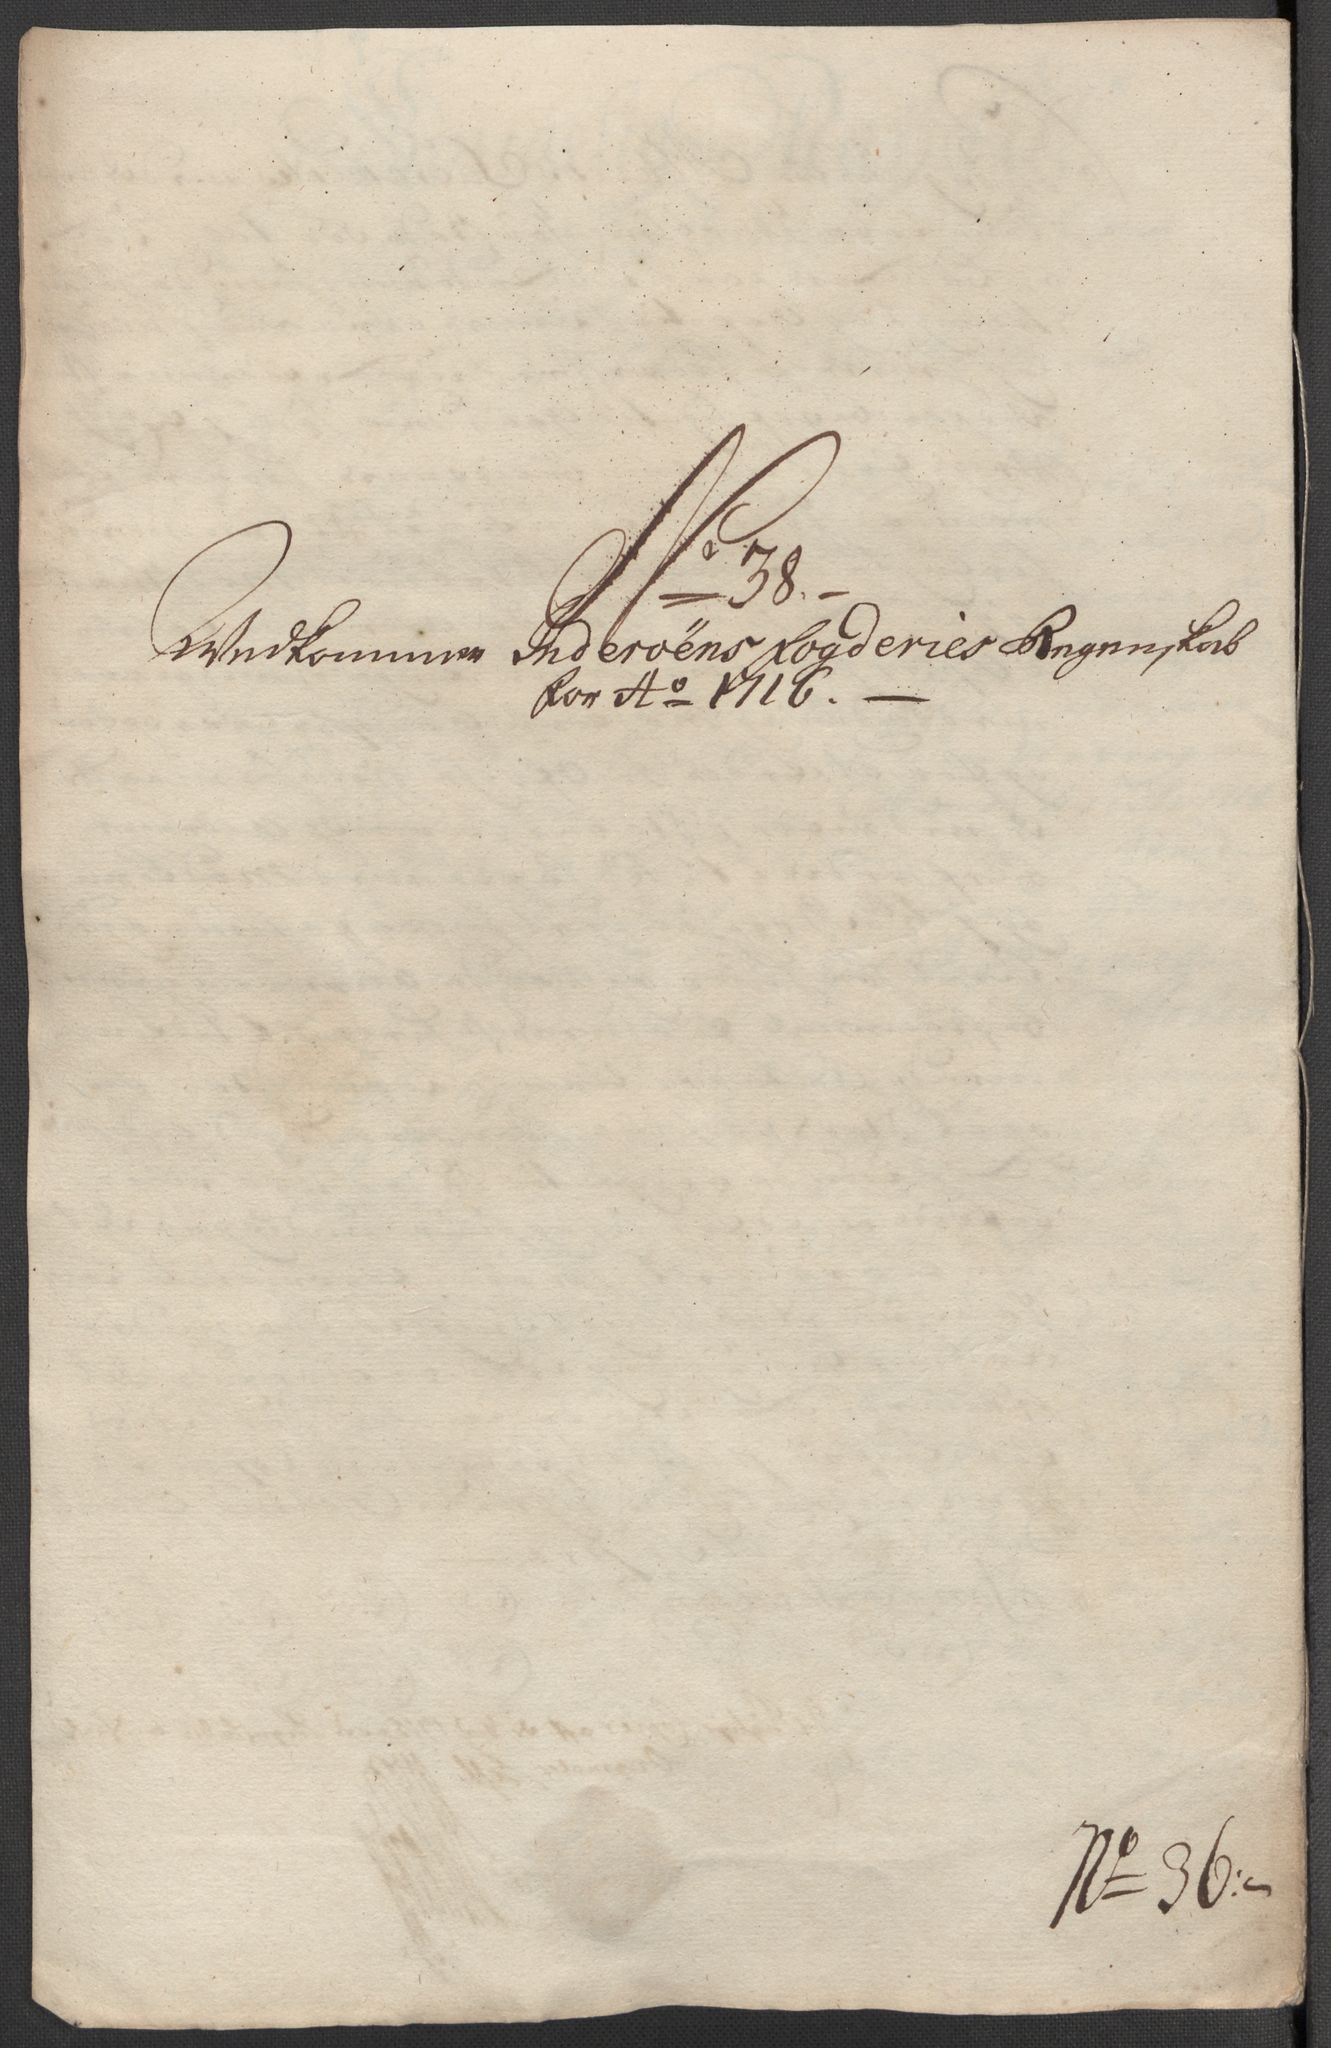 No 38.
Wedkommer Inderøens Fogderies Regenskab
for Ao 1716.
No 36: